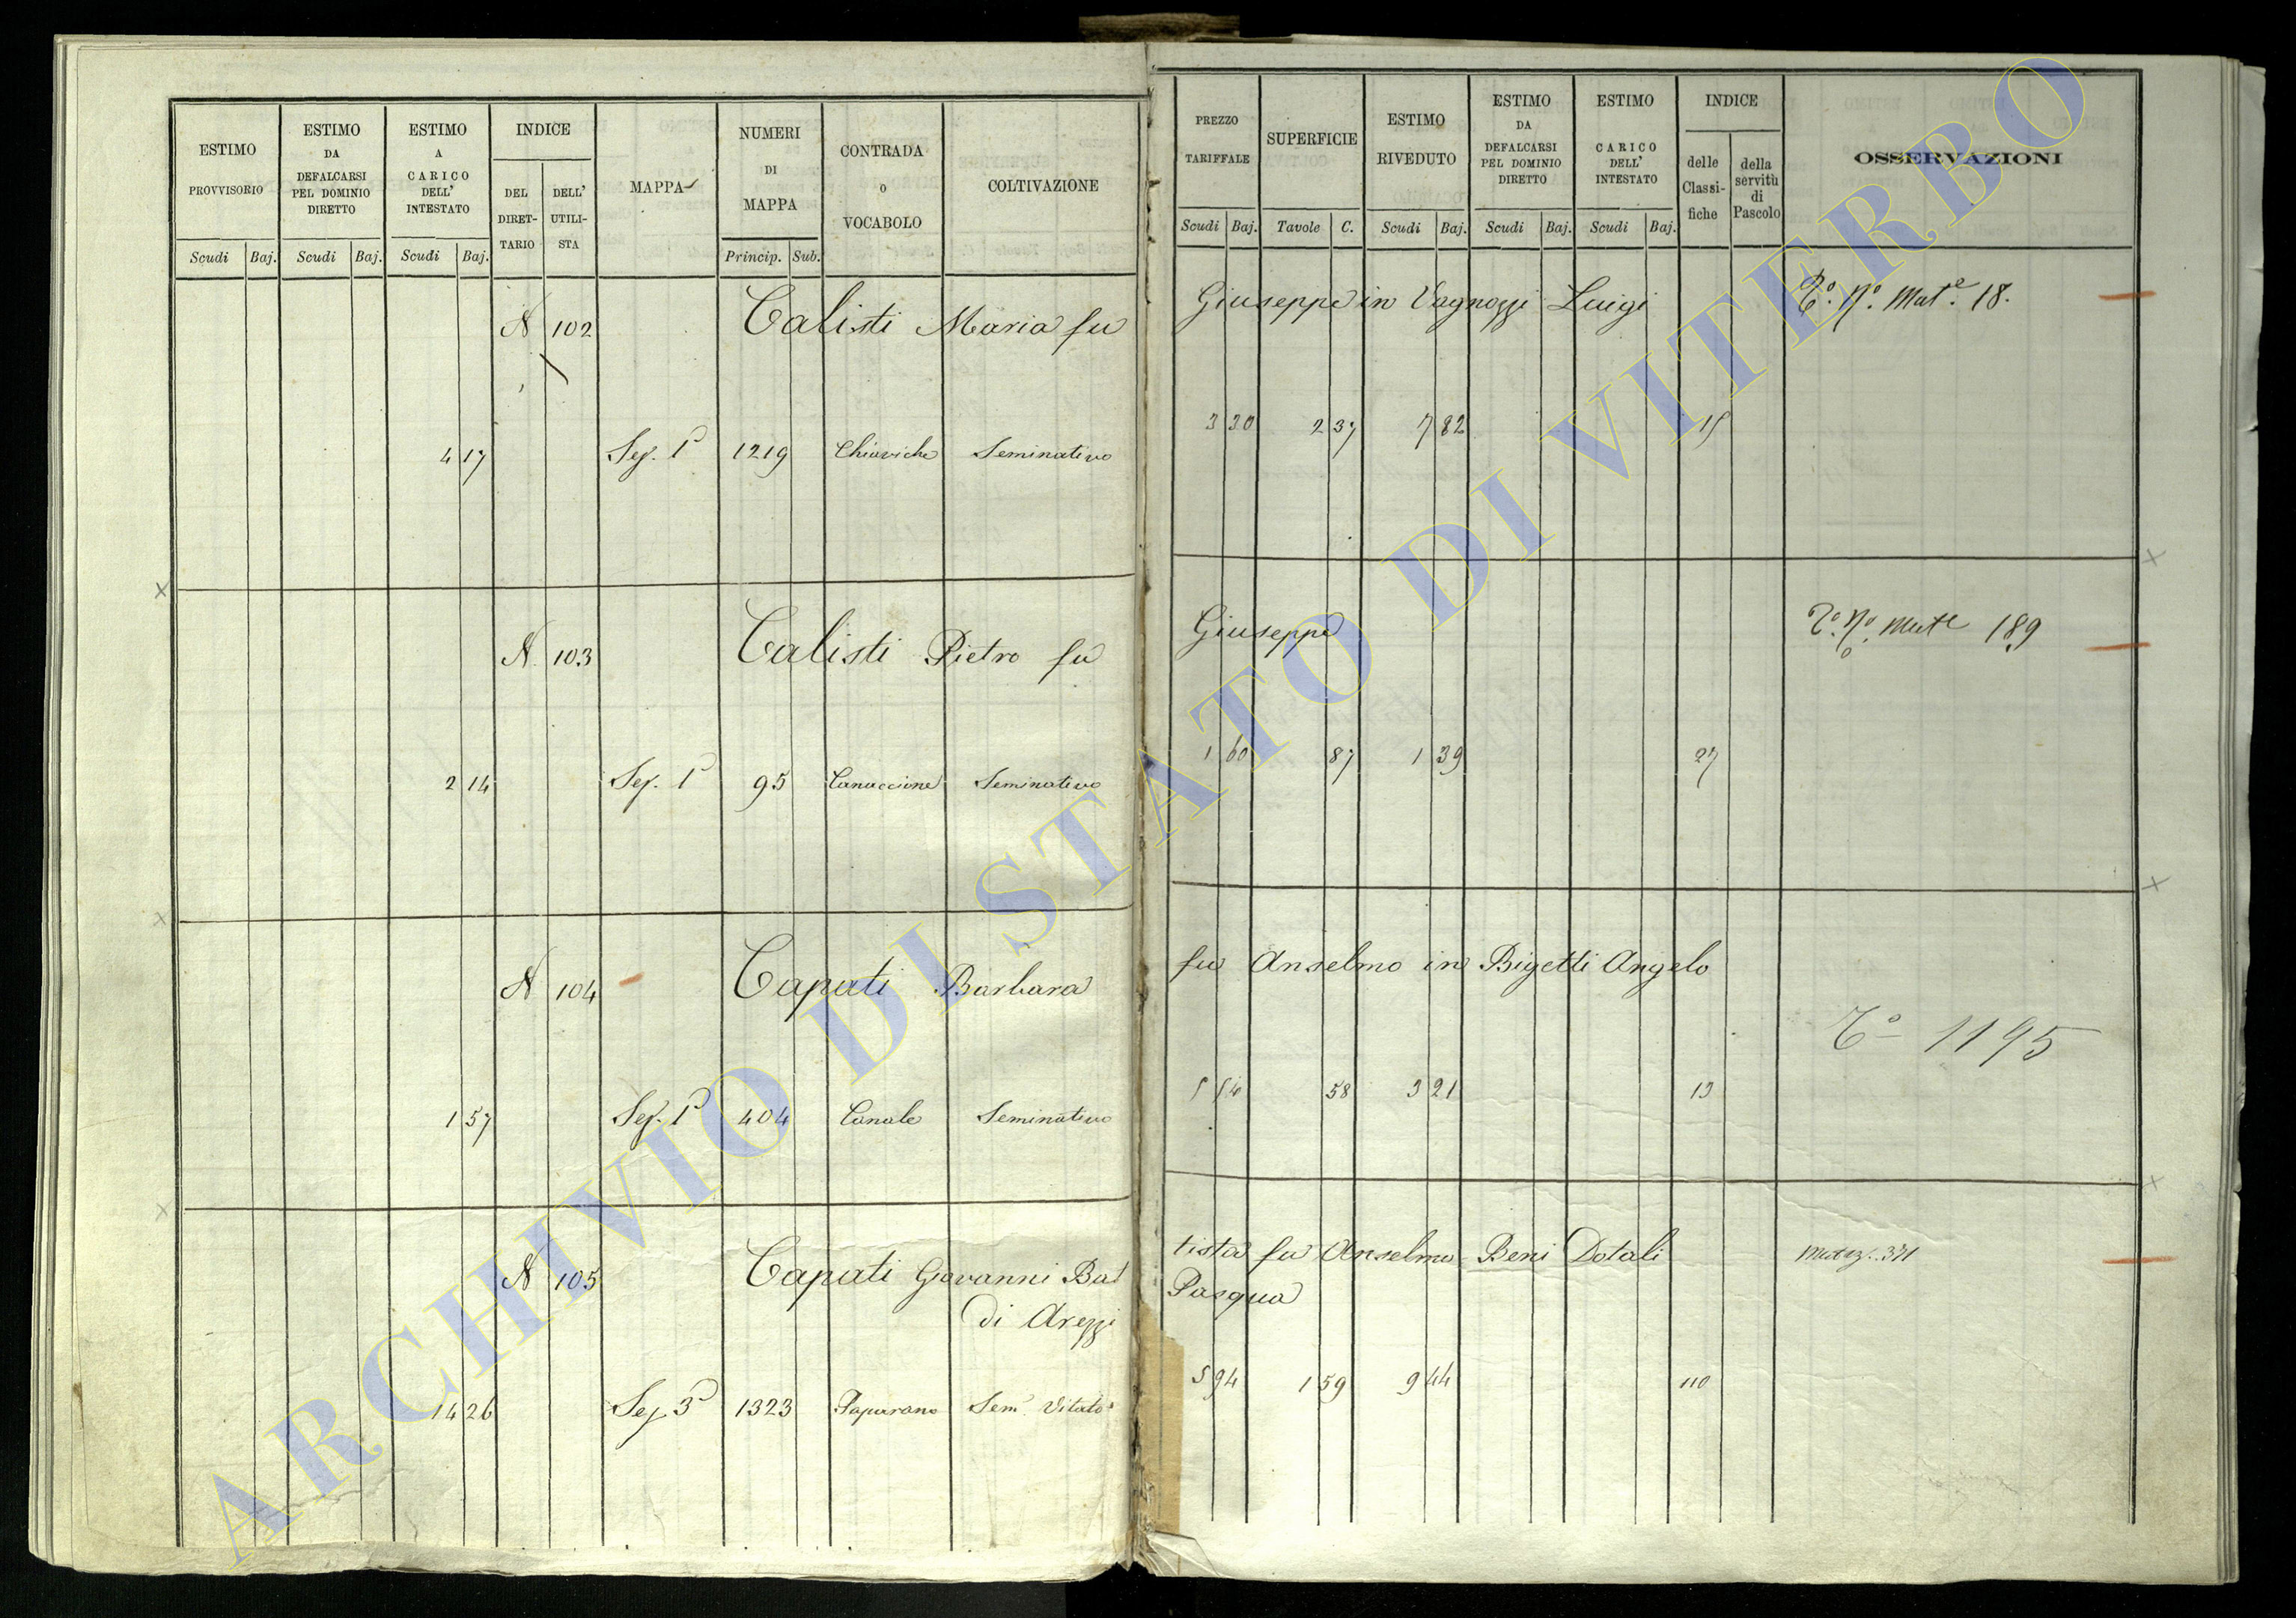 ESTIMO PROVVISORIO
ESTIMO DA DEFALCARSI PEL DOMINIO DIRETTO
ESTIMO A CARICO DELL' INTESTATO
INDICE
DEL DIRET-TARIO
DELL' UTILI-STA
MAPPA
NUMERI DI MAPPA
CONTRADA O VOCABOLO
COLTIVAZIONE
Scudi Baj. Scudi Baj. Scudi Baj. Princip. Sub.
PREZZO TARIFFALE
SUPERFICIE
ESTIMO RIVEDUTO
ESTIMO DA DEFALCARSI PEL DOMINIO DIRETTO
ESTIMO CARICO DELL' INTESTATO
INDICE
delle Classi-fiche
della servitù di Pascolo
OSSERVAZIONI
Scudi Baj. Tavole C. Scudi Baj. Scudi Baj. Scudi Baj.
N 102 Calisti Maria fu Giuseppe in Vagnozzi Luigi Tº. Nº. Matº. 18.
4 17 Sez. 1ª 1219 Chiaviche Seminativo 3 30 2 37 7 82 15
N. 103 Calisti Pietro fu Giuseppe Tº. Nº. Mate 189
2 14 Sez. 1ª 95 Canaccione Seminativo 1 60 87 1 39 27
N 104 Capati Barbara fu Anselmo in Bigetti Angelo
Tº 1195
1 57 Sez. 1ª 404 Canale Seminativo 5 54 58 3 21 13
N 105 Capati Giovanni Bat tista fu Anselmo Beni Dotali 371
di Arezzi Pasqua
14 26 Sez 3ª 1323 Paparano Sem. Vitato 5 94 1 59 9 44 110
ARCHIVIO DI STATO DI VITERBO